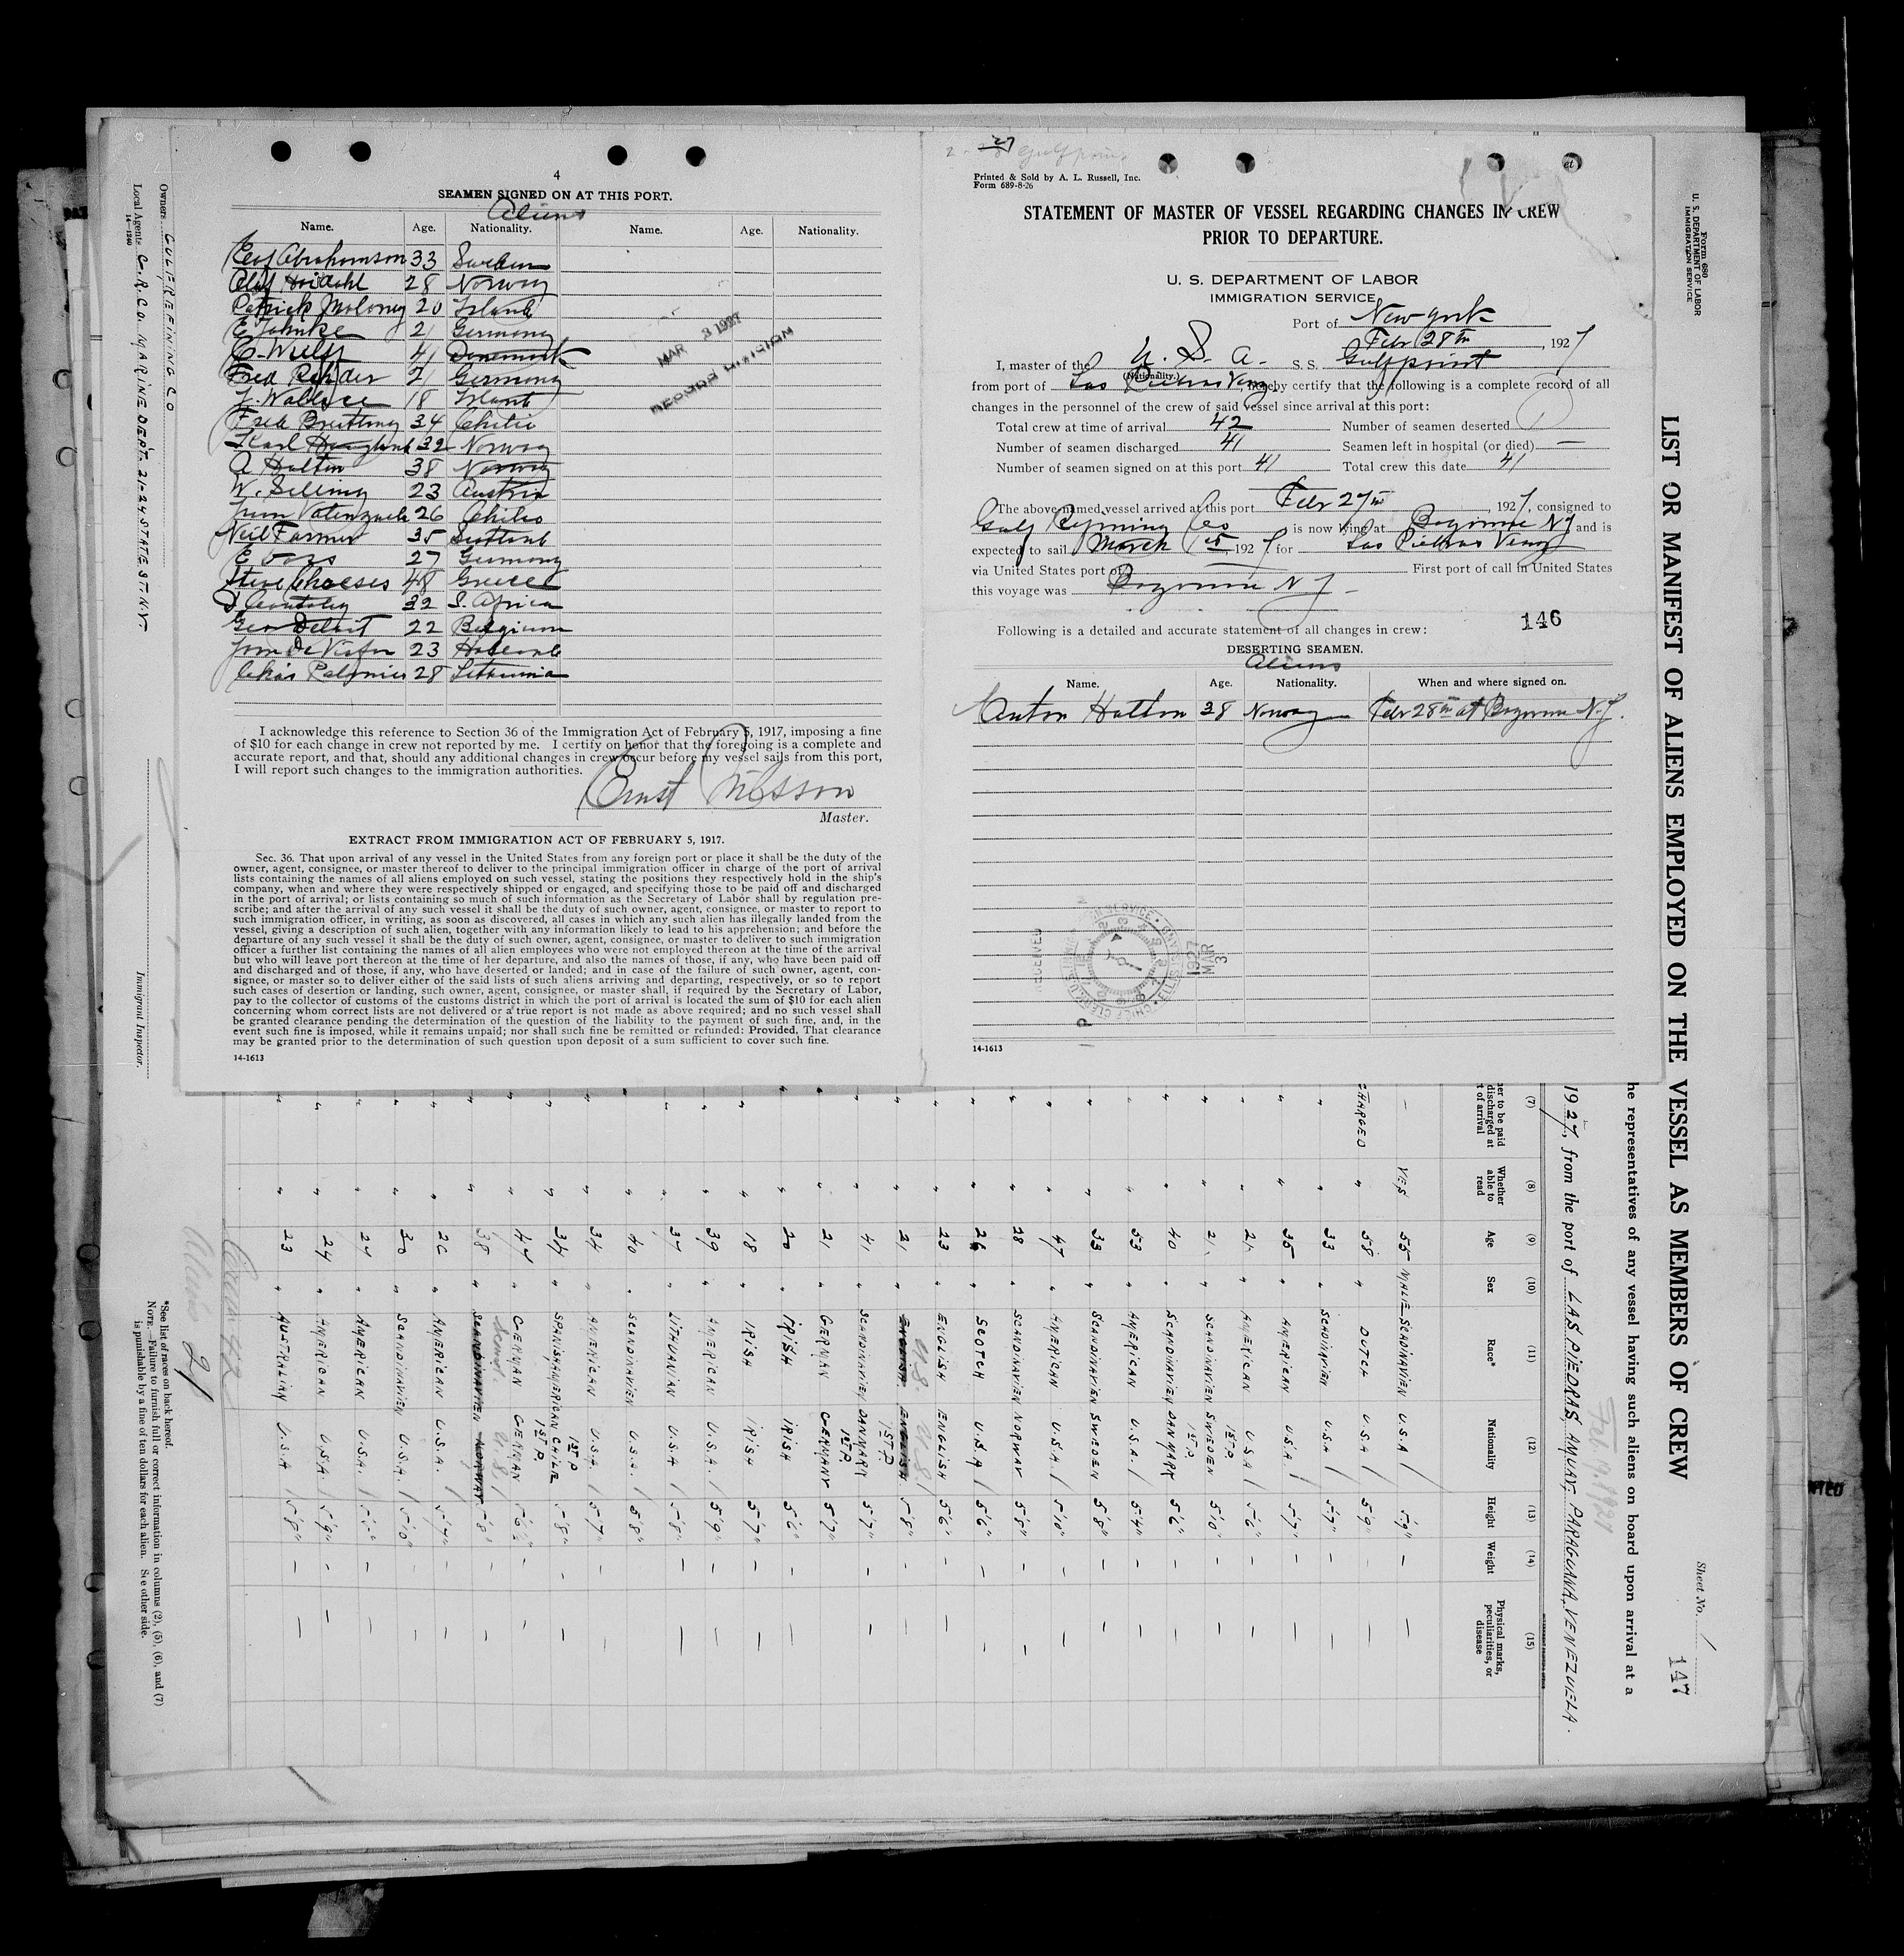 4
SEAMEN SIGNED ON AT THIS PORT.
Aliens
Name. Age. Nationality. Name. Age. Nationality.
Abrahamson 33 Sweden
Olaf 28 Norway
Patrick Moloney 20 Irland
E. Johnke 21 Germany
41 Denmark
Fred 21 Germany
J. Wallace 18 Irland
Fred 34 Chilie
Karl 32 Norway
A Halton 38 Norway
W. Selling 23 Austria
Valenzuela 26 Chilie
Neil Farmer 35 Scotland
E 27 Germany
Steve 48 Greece
32 S. Africa
Geo 22 Belgium
23
28 Lithuania
I acknowledge this reference to Section 36 of the Immigration Act of February 5, 1917, imposing a fine
of $10 for each change in crew not reported by me. I certify on honor that the foregoing is a complete and
accurate report, and that, should any additional changes in crew occur before my vessel sails from this port,
I will report such changes to the immigration authorities.
Ernst Nilsson
Master.
EXTRACT FROM IMMIGRATION ACT OF FEBRUARY 5, 1917.
Sec. 36. That upon arrival of any vessel in the United States from any foreign port or place it shall be the duty of the
owner, agent, consignee, or master thereof to deliver to the principal immigration officer in charge of the port of arrival
lists containing the names of all aliens employed on such vessel, stating the positions they respectively hold in the ship's
company, when and where they were respectively shipped or engaged, and specifying those to be paid off and discharged
in the port of arrival; or lists containing so much of such information as the Secretary of Labor shall by regulation pre-
scribe; and after the arrival of any such vessel it shall be the duty of such owner, agent, consignee, or master to report to
such immigration officer, in writing, as soon as discovered, all cases in which any such alien has illegally landed from the
vessel, giving a description of such alien, together with any information likely to lead to his apprehension; and before the
departure of any such vessel it shall be the duty of such owner, agent, consignee, or master to deliver to such immigration
officer a further list containing the names of all alien employees who were not employed thereon at the time of the arrival
but who will leave port thereon at the time of her departure, and also the names of those, if any, who have been paid off
and discharged and of those, if any, who have deserted or landed; and in case of the failure of such owner, agent, con-
signee, or master so to deliver either of the said lists of such aliens arriving and departing, respectively, or so to report
such cases of desertion or landing, such owner, agent, consignee, or master shall, if required by the Secretary of Labor,
pay to the collector of customs of the customs district in which the port of arrival is located the sum of $10 for each alien
concerning whom correct lists are not delivered or a true report is not made as above required; and no such vessel shall
be granted clearance pending the determination of the question of the liability to the payment of such fine, and, in the
event such fine is imposed, while it remains unpaid; nor shall such fine be remitted or refunded: Provided, That clearance
may be granted prior to the determination of such question upon deposit of a sum sufficient to cover such fine.
14-1613
MAR 3 1927
RECORD DIVISION
Gulfpoint
Printed & Sold by A. L. Russell, Inc.
Form 689-8-26
STATEMENT OF MASTER OF VESSEL REGARDING CHANGES IN CREW
PRIOR TO DEPARTURE.
U. S. DEPARTMENT OF LABOR
IMMIGRATION SERVICE
Port of New York
Feby 28th, 1927
I, master of the U. S. A. S. S. Gulfpoint
(Nationality.)
from port of Las Piedras Venz, hereby certify that the following is a complete record of all
changes in the personnel of the crew of said vessel since arrival at this port:
Total crew at time of arrival 42 Number of seamen deserted 1
Number of seamen discharged 41 Seamen left in hospital (or died) —
Number of seamen signed on at this port 41 Total crew this date 41
The above-named vessel arrived at this port Febr 27th, 1927, consigned to
Gulf Refining Co is now lying at Bayonne NJ and is
expected to sail March 1st 1927 for Las Piedras Venz
via United States port of First port of call in United States
this voyage was Bayonne N J -
146
Following is a detailed and accurate statement of all changes in crew:
DESERTING SEAMEN.
Aliens
Name. Age. Nationality. When and where signed on.
Anton Halton 38 Norway Febr 28th at Bayonne N.J.
RECEIVED
MAR 3 1927
14-1613
Form 680
U. S. DEPARTMENT OF LABOR
IMMIGRATION SERVICE
LIST OR MANIFEST OF ALIENS EMPLOYED ON THE VESSEL AS MEMBERS OF CREW
Sheet No. 1
147
he representatives of any vessel having such aliens on board upon arrival at a
1927, from the port of LAS PIEDRAS, AMUAY, PARAGUANA, VENEZUELA.
(7) (8) (9) (10) (11) (12) (13) (14) (15)
her to be paid discharged at t of arrival
Whether able to read
Age
Sex
Race*
Nationality
Height
Weight
Physical marks, peculiarities, or disease
— YES 55 MALE SCADINAVIEN U.S.A / 5'9" — —
CHARGED " 58 " DUTCH U.S.A / 5'9" — —
" " 33 " SCADINAVIEN U.S.A / 5'7" — —
" " 35 " AMERICAN U.S.A / 5'7" — —
" " 25 " AMERICAN U.S.A / 5'6" — —
" " 21 " SCANDINAVIEN SWEDEN 1st P. 5'10" — —
" " 40 " SCANDINAVIEN DANMARK 1st P. 5'6" — —
" " 53 " AMERICAN U.S.A. / 5'4" — —
" " 33 " SCANDINAVIEN SWEDEN 5'8" — —
" " 47 " AMERICAN U.S.A. / 5'10" — —
" " 28 " SCANDINAVIEN NORWAY 5'8" — —
" " 26 " SCOTCH U.S.A / 5'6" — —
" " 23 " ENGLISH ENGLISH 5'6" — —
" " 21 " ENGLISH ENGLISH U.S. U.S. / 5'8" — —
" " 41 " SCANDINAVIEN DANMARK 1st P. 5'7" — —
" " 21 " GERMAN GERMANY 1st P. 5'7"
" " 20 " IRISH IRISH 5'6" — —
" " 18 " IRISH IRISH 5'7" — —
" " 39 " AMERICAN U.S.A. / 5'9" — —
" " 37 " LITHUALIAN U.S.A / 5'8" — —
" " 40 " SCANDINAVIEN U.S.A. / 5'8"
" " 34 " AMERICAN U.S.A. / 5'7" — —
" " 34 " SPANISHAMERICAN CHILIE 1st P 5'8" — —
" " 47 " GERMAN GERMAN 1st P. 5'6½" — —
" " 38 " SCANDINAVIEN NORWAY Scand. U.S. / 5'8" — —
" " 26 " AMERICAN U.S.A. / 5'7" — —
" " 30 " SCANDINAVIEN U.S.A. / 5'0" — —
" " 27 " AMERICAN U.S.A. / — —
" " 24 " AMERICAN U.S.A / 5'9" — —
" " 23 " AUSTRALIAN U.S.A / 5'8" — —
Crew 42
Aliens 21
Owners GULF REFINING CO
Local Agents G.R.CO. MARINE DEPT. 21-24 STATE ST. N.Y.
14—1240
Immigrant Inspector.
*See list of races on back hereof.
NOTE.—Failure to furnish full or correct information in columns (2), (5), (6), and (7)
is punishable by a fine of ten dollars for each alien. See other side.